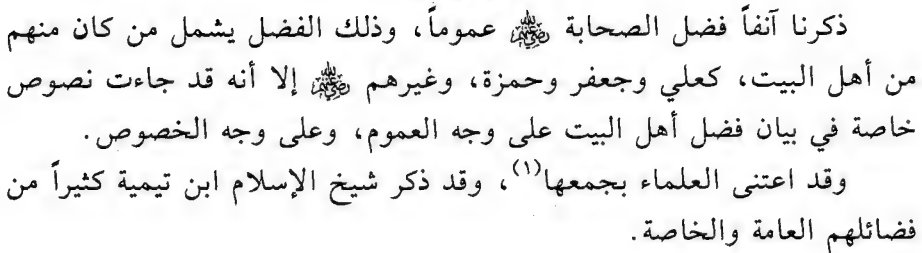 ذكرنا آنفاً فضل الصحابة رضي الله عنهم عموماً، وذلك الفضل يشمل من كان منهم
من أهل البيت، كعلي وجعفر وحمزة، وغيرهم رضي الله عنهم إلا أنه قد جاءت نصوص
خاصة في بيان فضل أهل البيت على وجه العموم، وعلى وجه الخصوص.
وقد اعتنى العلماء بجمعها(١)، وقد ذكر شيخ الإسلام ابن تيمية كثيراً من
فضائلهم العامة والخاصة.